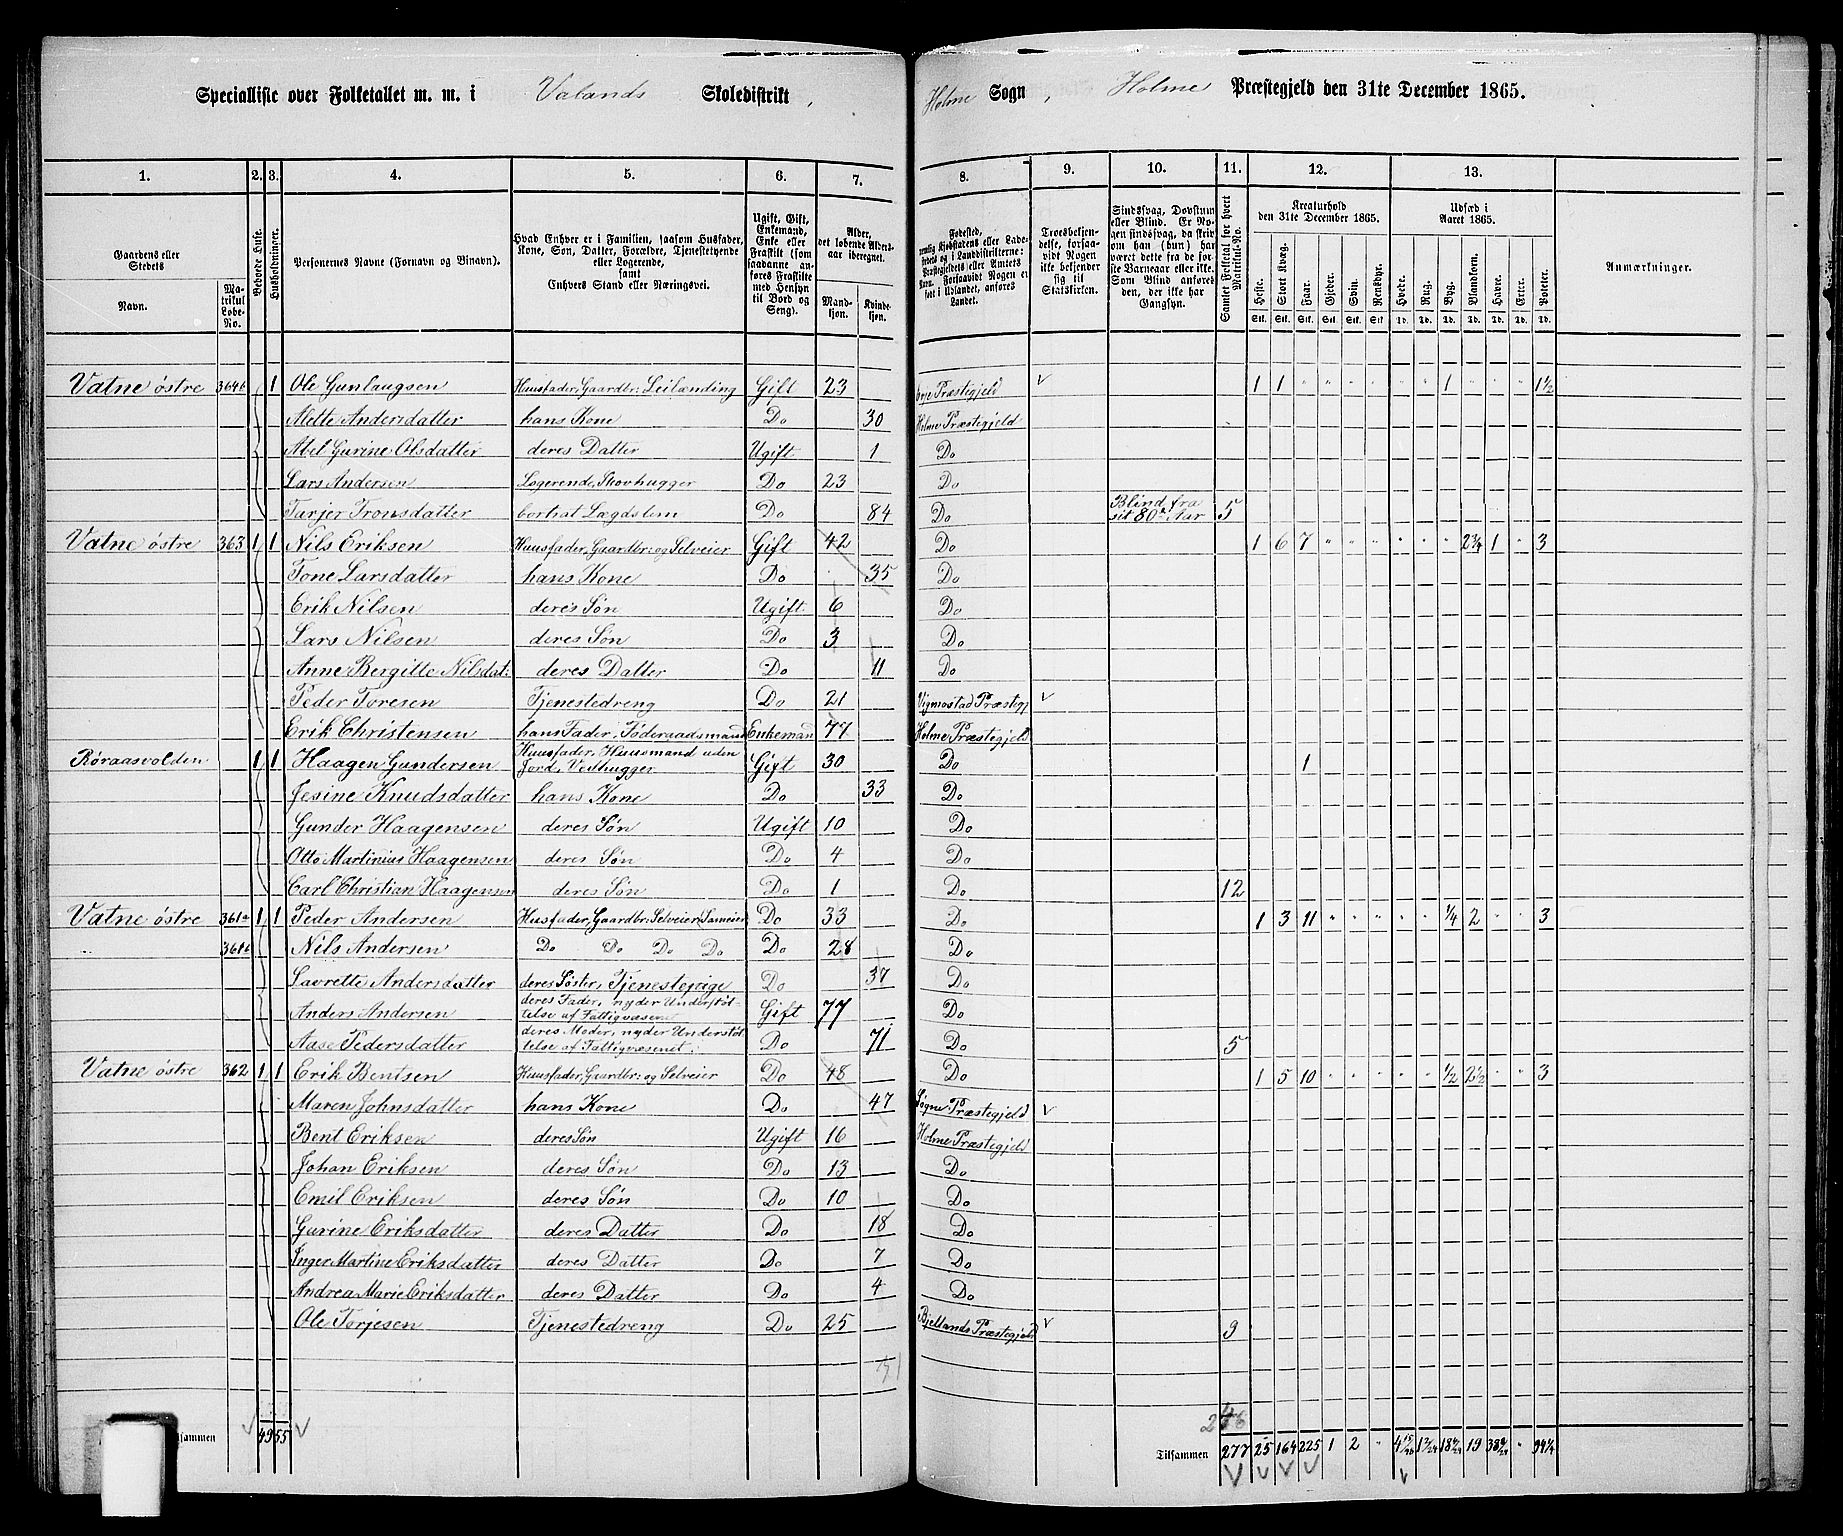 Specialliste over Folketallet m. m. i Valands Skoledistrikt, Holme Sogn, Holme Præstegjeld den 31te December 1865.
1. 2. 3. 4. 5. 6. 7. 8. 9. 10. 11. 12. 13.
Gaardens eller Stedets
Navn.
Matrikul Løbe-No.
Beboede Huse.
Husholdninger.
Personernes Navne (Fornavn og Binavn).
Hvad Enhver er i Familien, saasom Husfader, Kone, Søn, Datter, Forældre, Tjenestetyende eller Logerende, samt Enhvers Stand eller Næringsvei.
Ugift, Gift, Enkemand, Enke eller Fraskilt (som saadanne anføres Fraskilte med Hensyn til Bord og Seng).
Alder, det løbende Aldersaar iberegnet.
Mandkjøn.
Kvindekjøn.
Troesbekjendelse, forsaavidt Nogen ikke bekjender sig til Statskirken.
Sindssvag, Døvstum eller Blind. Er Nogen sindssvag, da skrives om han (hun) har været dette fra de første Barneaar eller ikke. Som Blind anføres den, der ikke har Gangsyn.
Samlet Folketal for hvert Matrikul-No.
Kreaturhold den 31te December 1865.
Heste. Stort Kvæg. Faar. Gjeder. Svin. Rensdyr.
Udsæd i Aaret 1865.
Hvede. Rug. Byg. Blandkorn. Havre. Erter. Poteter.
Anmærkninger.
Vatne østre 364b 1 Ole Gunlaugsen Huusfader, Gaardbr: Leilænding Gift 23 Præstegjeld 1 1 " " " " " " 1 " " " 1½
Alette Andersdatter hans Kone Do 30 Holme Præstegjeld
Abel Gurine Olsdatter deres Datter Ugift 1 Do
Lars Andersen Logerende, Skovhugger Do 23 Do
Tarjer Tronsdatter bortsat Lægdslem Do 84 Do Blind fra sit 80de Aar 5
Vatne østre 363 1 1 Nils Eriksen Huusfader, Gaardbr: og Selveier Gift 42 Do 1 6 7 " " " " " " 2¾ 1 " 3
Tone Larsdatter hans Kone Do 35 Do
Erik Nilsen deres Søn Ugift 6 Do
Lars Nilsen deres Søn Do 3 Do
Anne Bergitte Nilsdat: deres Datter Do 11 Do
Peder Toresen Tjenestedreng Do 21 Vigmostad Præstegj
Erik Christensen hans Fader, Føderaadsmand Enkemand 77 Holme Præstegjeld
Røraasvolden 1 1 Haagen Gundersen Huusfader, Huusmand uden Jord, Vedhugger Gift 30 Do 1
Jesine Knudsdatter hans Kone Do 33 Do
Gunder Haagensen deres Søn Ugift 10 Do
Otto Martinius Haagensen deres Søn Do 4 Do
Carl Christian Haagensen deres Søn Do 1 Do 12
Vatne østre 361a 1 1 Peder Andersen Husfader, Gaardbr: Selveier (Sameier Do 33 Do 1 3 11 " " " " " ¼ 2 " " 3
361b Nils Andersen Do Do Do Do Do 28 Do
Lavrette Andersdatter deres Søster, Tjenestepige Do 37 Do
Anders Andersen deres Fader, nyder Understøttelse af Fattigvæsenet Gift 77 Do
Aase Pedersdatter deres Moder, nyder Understøttelse af Fattigvæsenet: Do 71 Do 5
Vatne østre 362 1 1 Erik Bentsen Huusfader, Gaardbr: og Selveier Do 48 Do 1 5 10 " " " " " ½ 2½ " " 3
Maren Johnsdatter hans Kone Do 47 Søgne Præstegjeld
Bent Eriksen deres Søn Ugift 16 Holme Præstegjeld
Johan Eriksen deres Søn Do 13 Do
Emil Eriksen deres Søn Do 10 Do
Gurine Eriksdatter deres Datter Do 18 Do
Inger Martine Eriksdatter deres Datter Do 7 Do
Andrea Marie Eriksdatter deres Datter Do 4 Do
Ole Torjesen Tjenestedreng Do 25 Bjellands Præstegjeld 9
49 55
Tilsammen 277 25 164 225 1 2 "